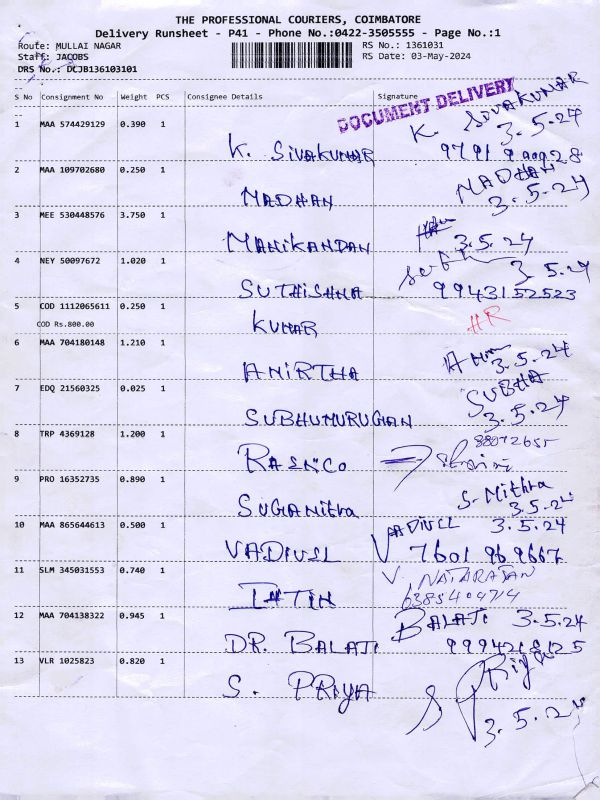 THE PROFESSIONAL COURIERS, COIMBATORE
Delivery Runsheet - P41 - Phone No.:0422-3505555 - Page No.:1
Route: MULLAI NAGAR RS No.: 1361031
Staff: JACOBS RS Date: 03-May-2024
DRS No.: DCJB136103101
S No Consignment No Weight PCS Consignee Details Signature
DOCUMENT DELIVERY
1 MAA 574429129 0.390 1 K. SIVAKUMAR K. SIVAKUMAR
3.5.24
2 MAA 109702680 0.250 1 MADHAN MADHAN
3.5.24
3 MEE 530448576 3.750 1 MANIKANDAN
3.5.24
4 NEY 50097672 1.020 1 SUTHISHNA
3.5.24
9943152523
5 COD 1112065611 0.250 1 KUMAR HR
COD Rs.800.00
6 MAA 704180148 1.210 1 ANIRTHA
3.5.24
7 EDQ 21560325 0.025 1 SUBHUMURUGAN SUBHA
3.5.24
8 TRP 4369128 1.200 1 RASNCO
9 PRO 16352735 0.890 1 SUGANITHA S. Mithra
3.5.24
10 MAA 865644613 0.500 1 VADIVEL VADIVEL 3.5.24
7601 96 9667
11 SLM 345031553 0.740 1 V. NATARAJAN
6385404714
12 MAA 704138322 0.945 1 DR. BALAJI BALAJI 3.5.24
13 VLR 1025823 0.820 1 S. PRIYA S Priya
3.5.24